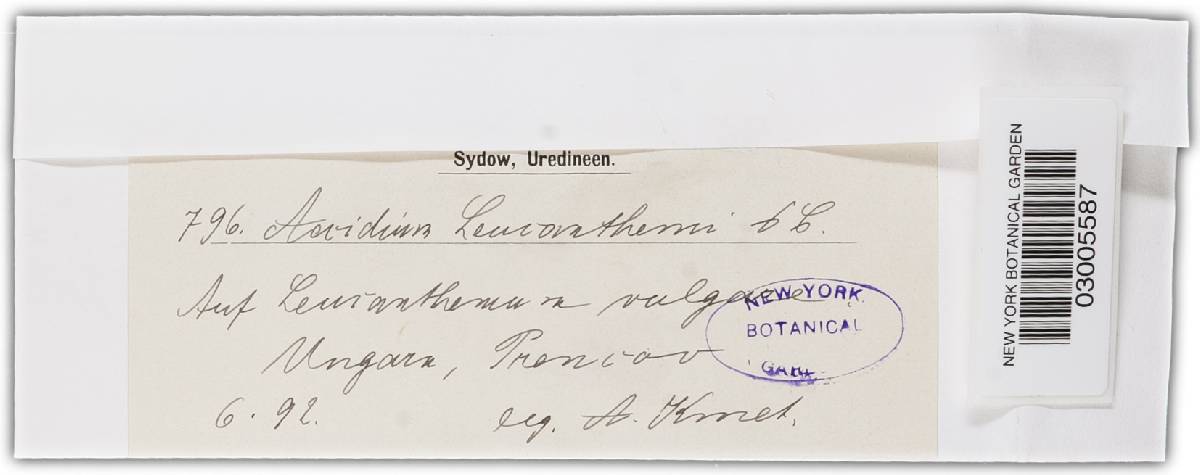 Sydow, Uredineen.
796. Aecidium Leucanthemi DC.
Auf Leucanthemum vulgare.
Ungarn, Prencov
6. 92. leg. A. Kmet.
NEW YORK
BOTANICAL
GARDEN
NEW YORK BOTANICAL GARDEN
03005587